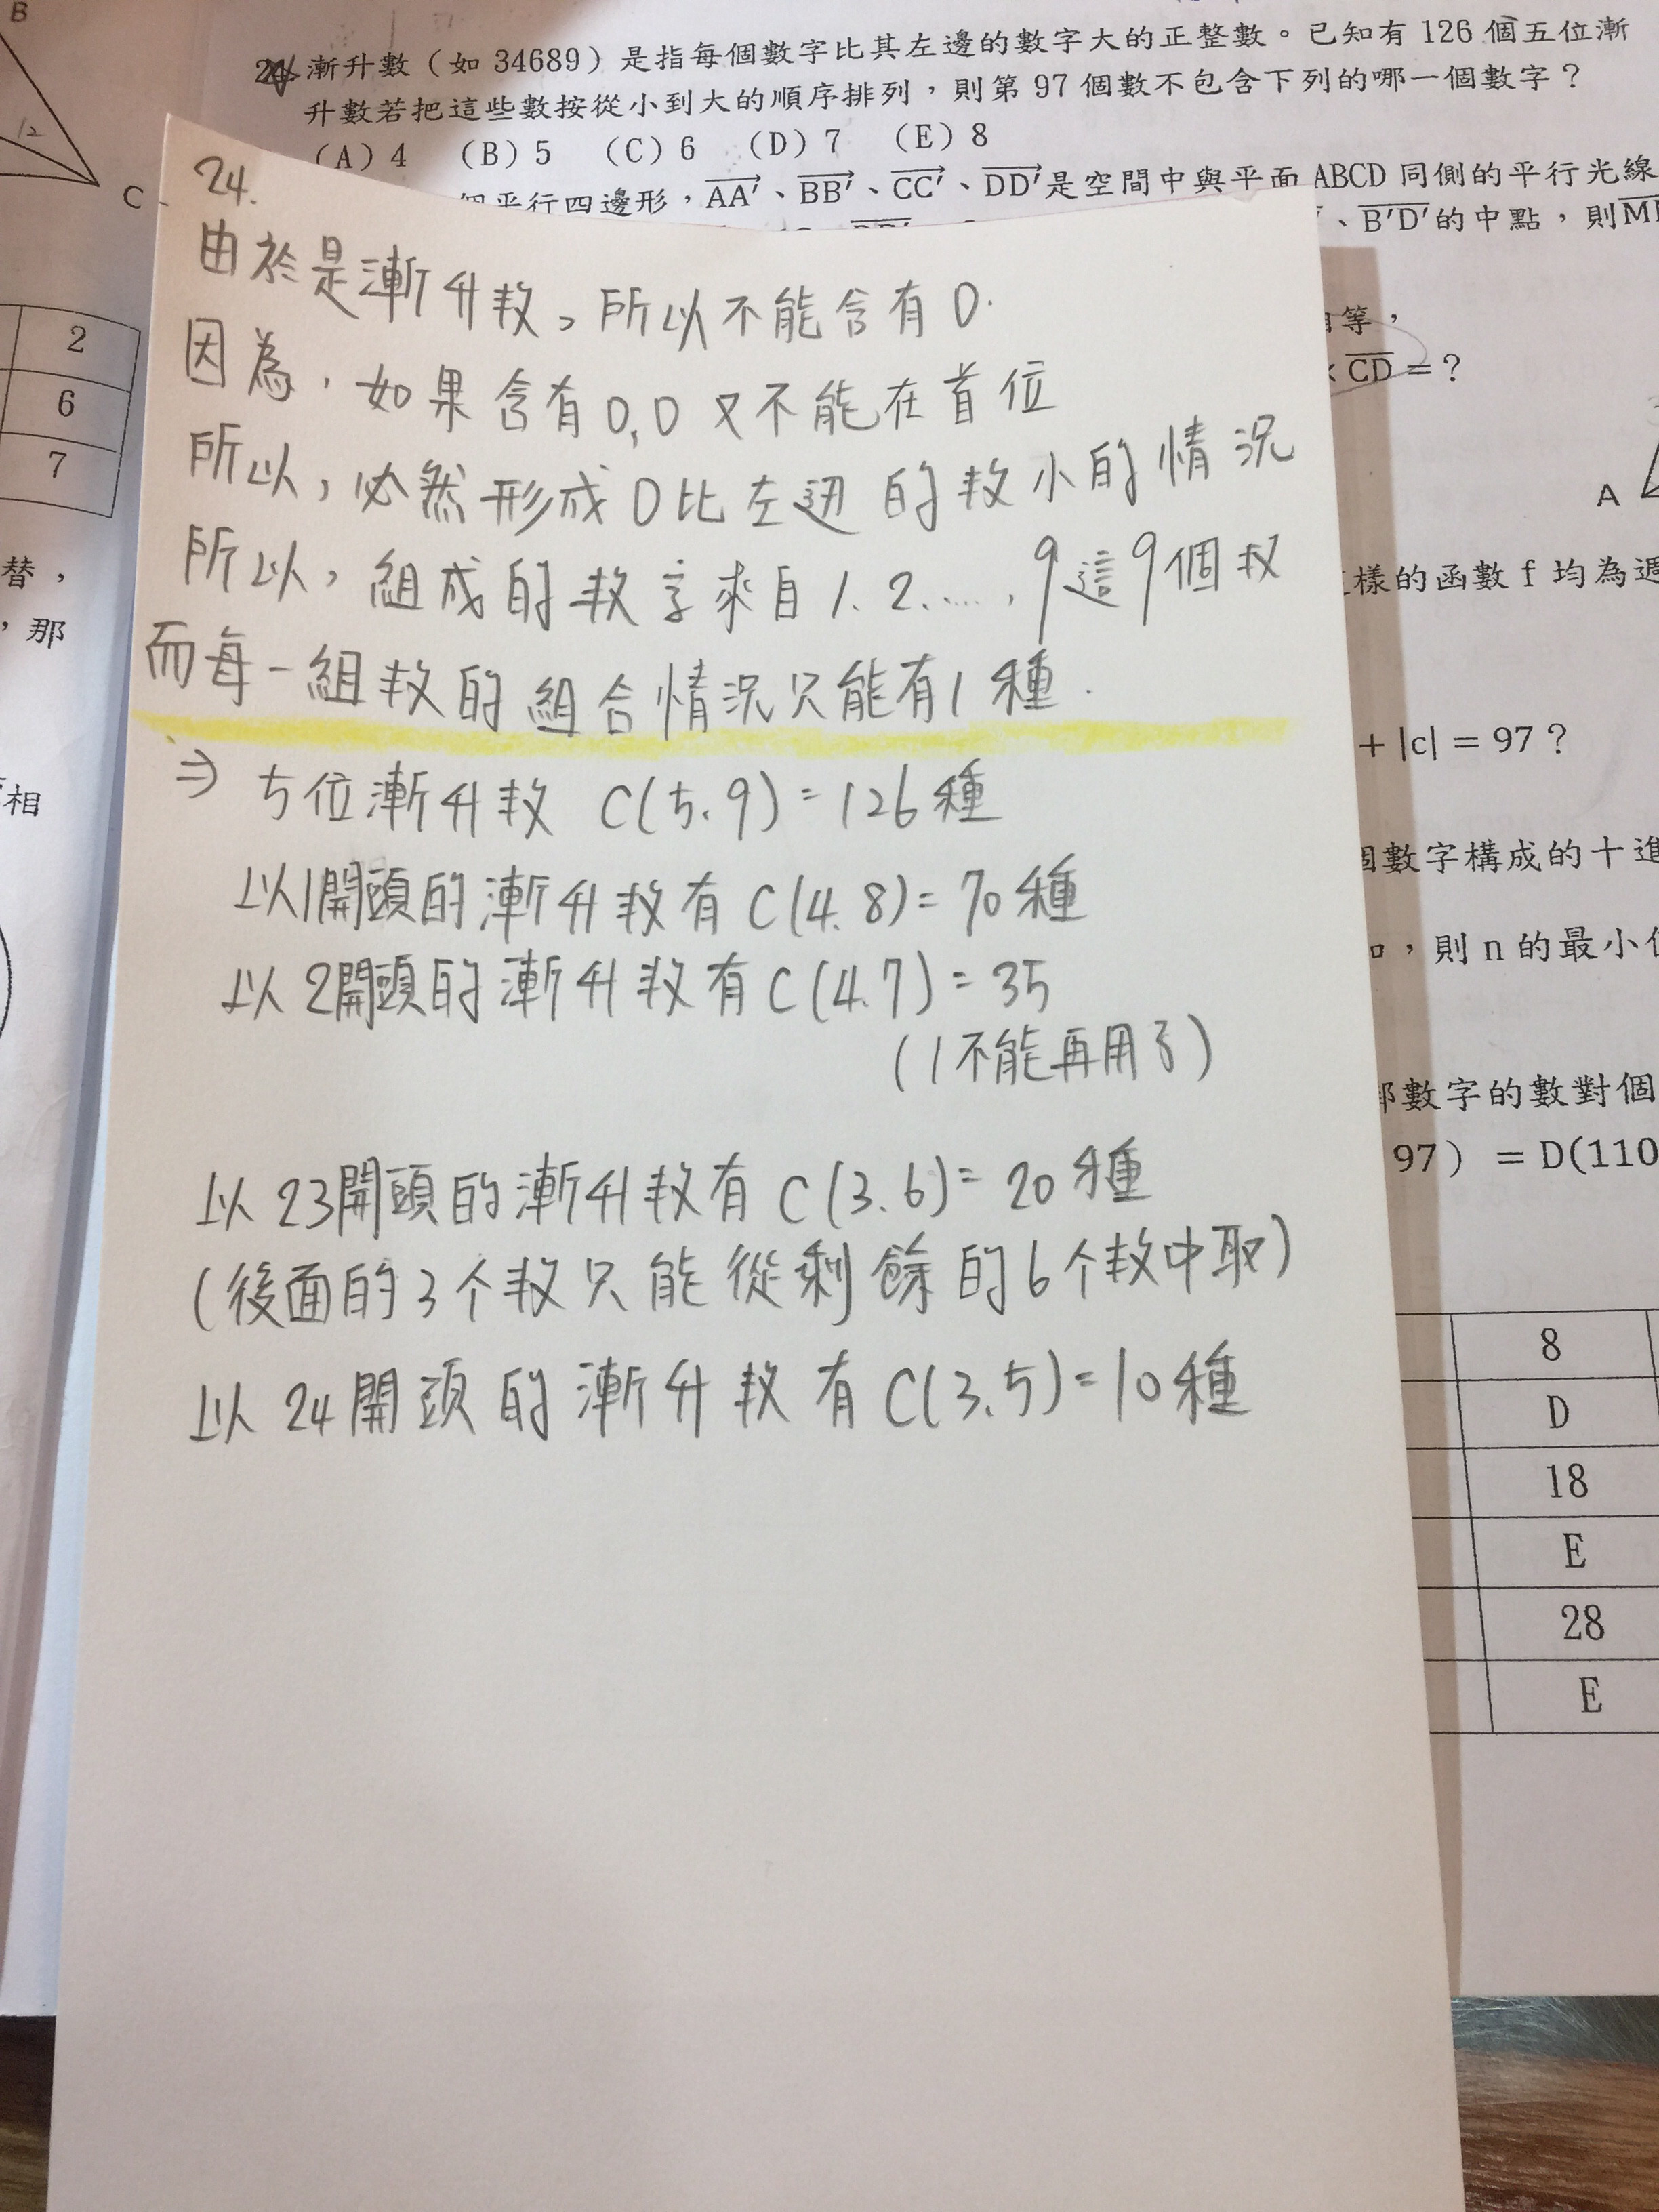 B
12
C
2
6
7
替,
,那
相
24. 漸升數(如 34689)是指每個數字比其左邊的數字大的正整數。已知有 126 個五位漸
升數若把這些數按從小到大的順序排列,則第 97 個數不包含下列的哪一個數字?
(A)4 (B)5 (C)6 (D)7 (E)8
個平行四邊形,AA'、BB'、CC'、DD'是空間中與平面 ABCD 同側的平行光線
、B'D'的中點,則M
等,
× CD = ?
A
樣的函數 f 均為週
+ |c| = 97 ?
個數字構成的十進
,則 n 的最小
數字的數對個
97) = D(110
8
D
18
E
28
E
24.
由於是漸升数,所以不能含有0.
因為,如果含有0,0又不能在首位
所以,必然形成0比左边的数小的情況
所以,組成的数字來自1.2.…..,9這9個数
而每一組数的組合情況只能有1種.
⇒ 5位漸升数 C(5.9)=126種
以1開頭的漸升数有C(4.8)=70種
以2開頭的漸升数有C(4.7)=35
(1不能再用了)
以23開頭的漸升数有C(3.6)=20種
(後面的3个数只能從剩餘的6个数中取)
以24開頭的漸升数有C(3.5)=10種